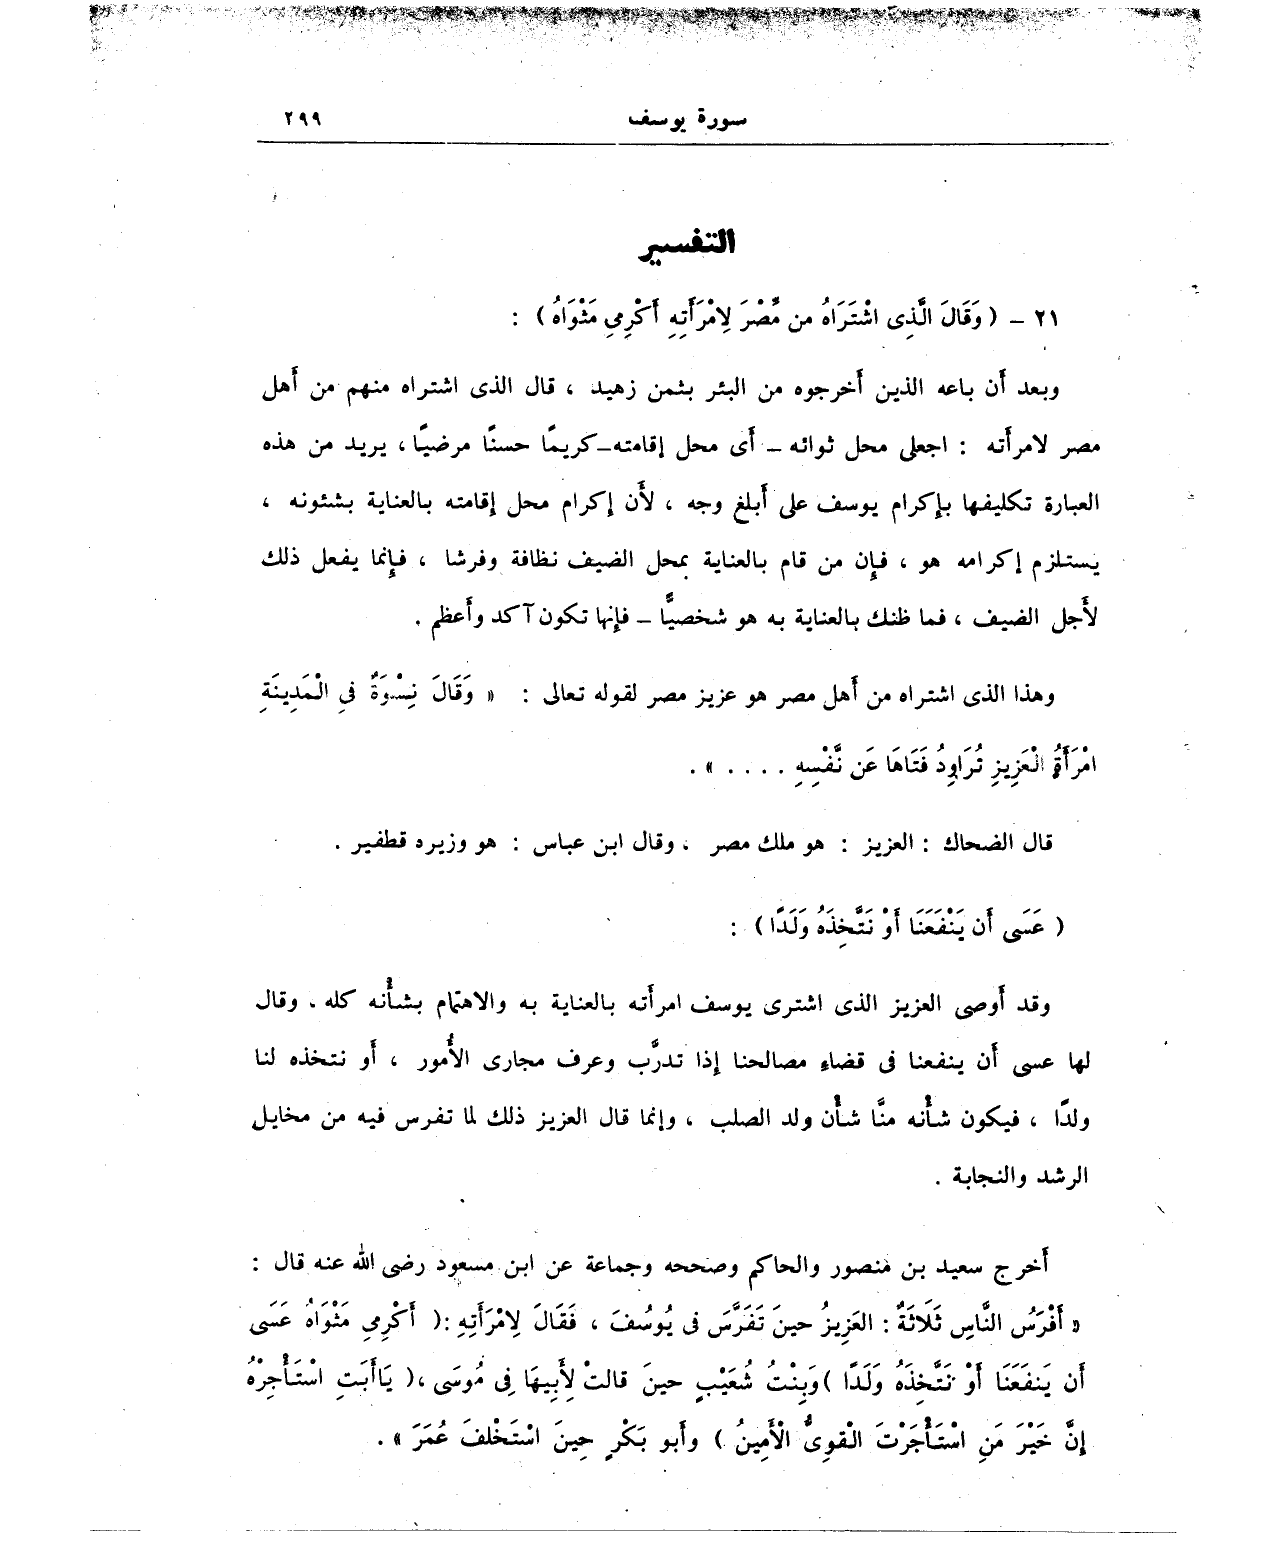 سورة يوسف ٢٩٩
التفسير
٢١ – ( وَقَالَ الَّذِى اشْتَرَاهُ من مِّصْرَ لِامْرَأَتِهِ أَكْرِمِي مَثْوَاهُ ) :
وبعد أن باعه الذين أخرجوه من البئر بثمن زهيد ، قال الذى اشتراه منهم من أهل
مصر لامرأته : اجعلى محل ثوائه – أى محل إقامته – كريمًا حسنًا مرضيًا ، يريد من هذه
العبارة تكليفها بإكرام يوسف على أبلغ وجه ، لأن إكرام محل إقامته بالعناية بشئونه ،
يستلزم إكرامه هو ، فإن من قام بالعناية بمحل الضيف نظافة وفرشا ، فإنما يفعل ذلك
لأجل الضيف ، فما ظنك بالعناية به هو شخصيًّا – فإنها تكون آكد وأعظم .
وهذا الذى اشتراه من أهل مصر هو عزيز مصر لقوله تعالى : « وَقَالَ نِسْوَةٌ فِي الْمَدِينَةِ
امْرَأَةُ الْعَزِيزِ تُرَاوِدُ فَتَاهَا عَن نَّفْسِهِ . . . . » .
قال الضحاك : العزيز : هو ملك مصر ، وقال ابن عباس : هو وزيره قطفير .
( عَسَى أَن يَنْفَعَنَا أَوْ نَتَّخِذَهُ وَلَدًا ) :
وقد أوصى العزيز الذى اشترى يوسف امرأته بالعناية به والاهتمام بشأنه كله . وقال
لها عسى أن ينفعنا فى قضاء مصالحنا إذا تدرَّب وعرف مجارى الأُمور ، أو نتخذه لنا
ولدًا ، فيكون شأْنه منَّا شأْن ولد الصلب ، وإنما قال العزيز ذلك لما تفرس فيه من مخايل
الرشد والنجابة .
أخرج سعيد بن منصور والحاكم وصححه وجماعة عن ابن مسعود رضى الله عنه قال :
« أَفْرَسُ النَّاسِ ثَلَاثَةٌ : العَزِيزُ حينَ تَفَرَّسَ فى يُوسُفَ ، فَقَالَ لِامْرَأَتِهِ : ( أَكْرِمِي مَثْوَاهُ عَسَى
أَن يَنفَعَنَا أَوْ نَتَّخِذَهُ وَلَدًا ) وَبِنْتُ شُعَيْبٍ حينَ قالتْ لِأَبِيهَا فِى مُوسَى ، ( يَاأَبَتِ اسْتَأْجِرْهُ
إِنَّ خَيْرَ مَنِ اسْتَأْجَرْتَ الْقوِىُّ الْأَمِينُ ) وأَبو بَكْرٍ حِينَ اسْتَخْلفَ عُمَرَ » .